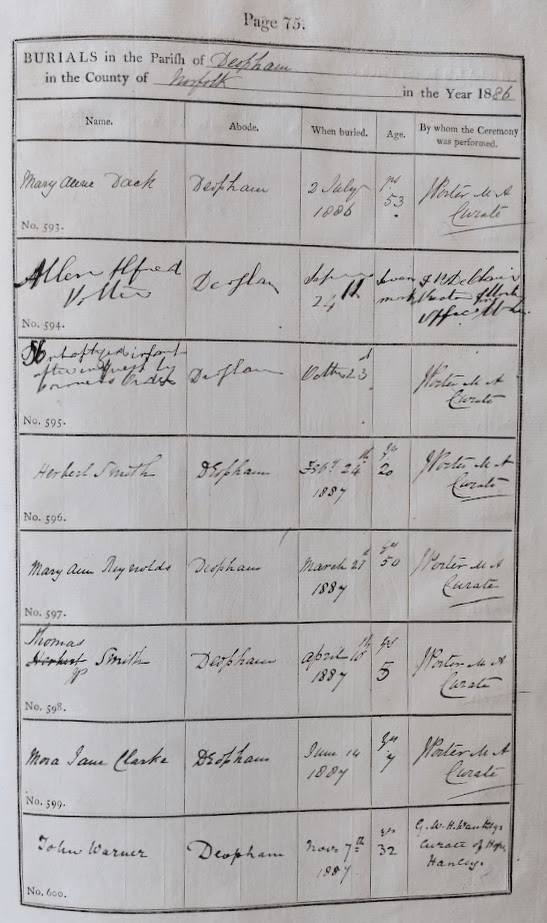 Page 75.
BURIALS in the Parish of Deopham
in the County of Norfolk in the Year 1886
Name. Abode. When buried. Age. By whom the Ceremony
was performed.
Mary Anne Dack Deopham 2 July
1886 yrs
53 J Porter M A
Curate
No. 593.
Allen Alfred
Deopham
24th
No. 594.
infant
Deopham J Porter M A
Curate
No. 595.
Herbert Smith Deopham Feby 24th
1887 yrs
20 J Porter M A
Curate
No. 596.
Mary Ann Reynolds Deopham March
1887 yrs
50 J Porter M A
Curate
No. 597.
Thomas
Herbert Smith Deopham April
1887 yrs
5 J Porter M A
Curate
No. 598.
Jane Clarke Deopham June 14
1887 yrs
7 J Porter M A
Curate
No. 599.
John Warner Deopham Novr 7th
1887 yrs
32 G. W. H.
Curate of Hope
Hanley
No. 600.